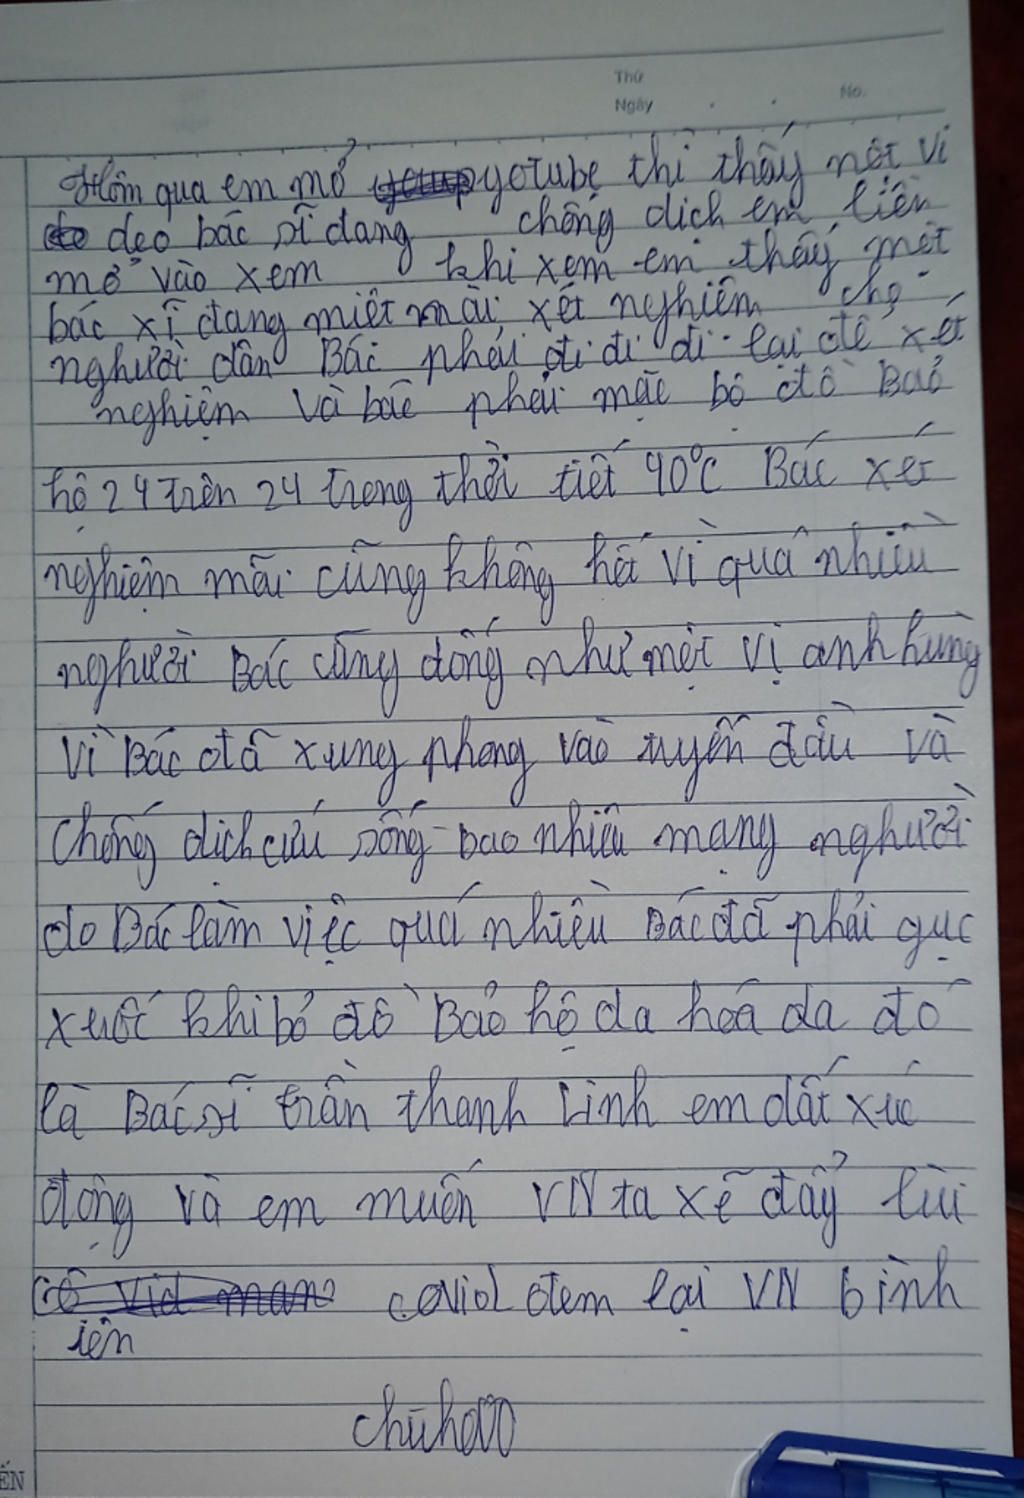 Thứ
Ngày No.
Hôm qua em mở yotube thì thấy một vi
deo bác sĩ dang chống dich em liền
mở vào xem khi xem em thấy một
bác xĩ đang miệt mài xét nghiêm cho
người dân Bác phải đi đi đi lại để xét
nghiệm và bác phải mặc bộ đồ Bảo
hộ 24 trên 24 trong thời tiết 40°C Bác xét
nghiệm mãi cũng không hết vì quá nhiều
người Bác cũng dống như một vị anh hùng
vì Bác đã xung phong vào tuyến đầu và
chống dịch cứu sống bao nhiêu mạng người
do Bác làm việc quá nhiều Bác đã phải gục
xuốt khi bỏ đồ Bảo hộ da hoá da đó
là Bác sĩ trần thanh Linh em dất xúc
động và em muốn VN ta xẽ đẩy lùi
covid đem lại VN bình
iên